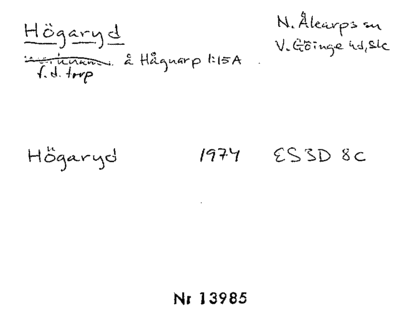 Högaryd
N. Åkarps sn
V. Göinge hd, Sk
f.d. torp å Hågnarp 1:15A
Högaryd 1974 ES3D 8c
Nr 13985